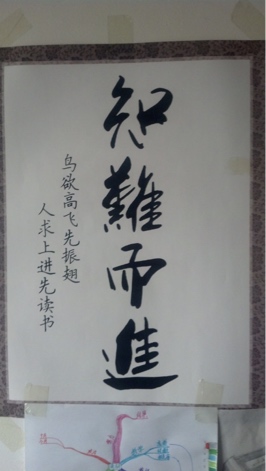 知難而進
鸟欲高飞先振翅
人求上进先读书